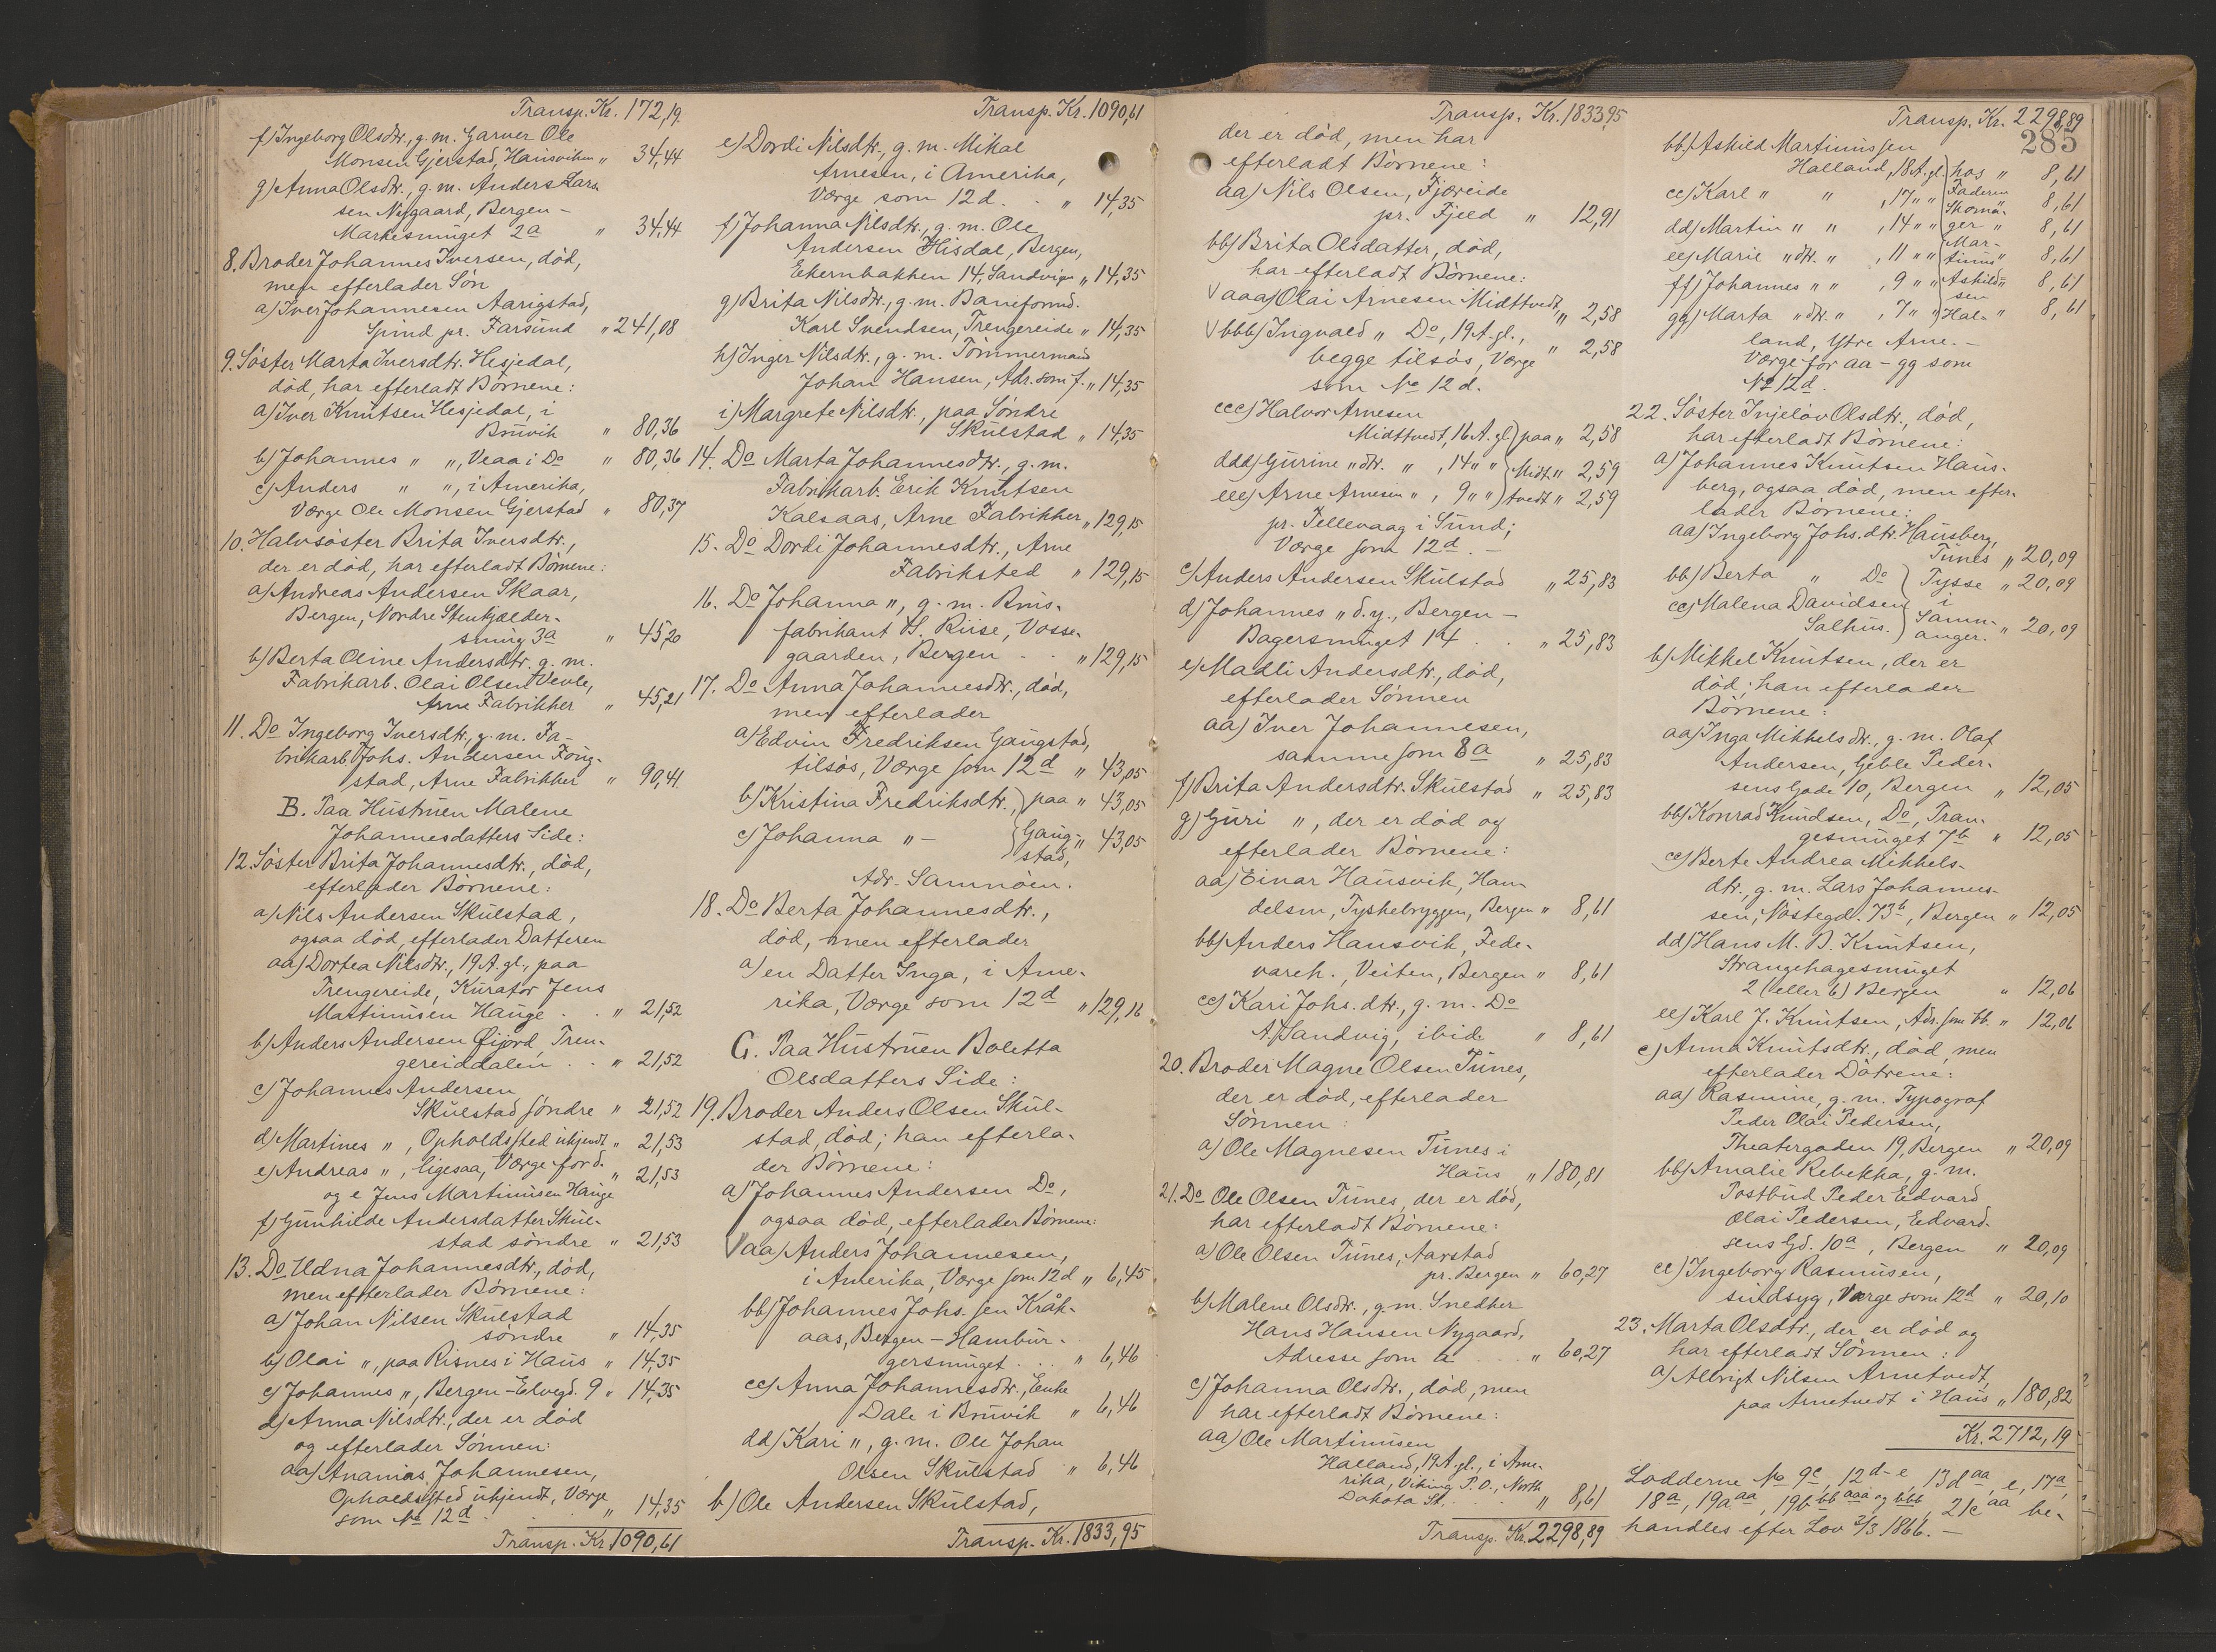 Transp. Kr. 172,19
f) Ingeborg Olsdtr., g. m. Garver Ole
Monsen Gjerstad, Hausviken „ 34,44
g) Anna Olsdtr., g. m. Anders Lars-
sen Nygaard, Bergen –
Markesmuget 2a „ 34,44
8. Broder Johannes Iversen, död,
men efterlader Sön
a) Iver Johannesen Aarigstad,
Spind pr. Farsund „ 241,08
9. Söster Marta Iversdtr. Hesjedal,
död, har efterladt Börnene:
a) Iver Knutsen Hesjedal, i
Bruvik „ 80,36
b) Johannes „ „, Veaa i Do „ 80,36
c) Anders „ „, i Amerika,
Værge Ole Monsen Gjerstad „ 80,37
10. Halvsöster Brita Iversdtr.,
der er död, har efterladt Börnene:
a) Andreas Andersen Skaar,
Bergen, Nordre Stenkjælder-
smug 3a „ 45,20
b) Berta Oline Andersdtr. g. m.
Fabrikarb. Olai Olsen Vevle,
Arne Fabrikker „ 45,21
11. Do Ingeborg Iversdtr., g. m. Fa-
brikarb. Johs. Andersen Foug-
stad, Arne Fabrikker „ 90,41
B. Paa Hustruen Malene
Johannesdatters Side:
12. Söster Brita Johannesdtr., död,
efterlader Börnene:
a) Nils Andersen Skulstad,
ogsaa död, efterlader Datteren
aa) Dortea Nilsdtr., 19 A. gl., paa
Trengereide, Kurator Jens
Martinusen Hauge . . „ 21,52
b) Anders Andersen Öijord, Tren-
gereiddalen . . „ 21,52
c) Johannes Andersen
Skulstad söndre „ 21,52
d) Martines „, Opholdssted ukjendt „ 21,53
e) Andreas „, ligesaa, Værge for d. „ 21,53
og e Jens Martinusen Hauge
f) Gunhilde Andersdatter Skul-
stad söndre „ 21,53
13. Do Udna Johannesdtr., död,
men efterlader Börnene:
a) Johan Nilsen Skulstad
söndre „ 14,35
b) Olai „, paa Risnes i Haus „ 14,35
c) Johannes „, Bergen – Elvegd. 9 „ 14,35
d) Anna Nilsdtr., der er död
og efterlader Sönnen:
aa) Ananias Johannesen,
Opholdssted ukjendt, Værge
som No 12d . . „ 14,35
Transp. Kr 1090,61
Transp. Kr. 1090,61
e) Dordi Nilsdtr., g. m. Mikal
Arnesen, i Amerika,
Værge som 12 d. . „ 14,35
f) Johanna Nilsdtr., g. m. Ole
Andersen Hisdal, Bergen,
Ekernbakken 14, Sandviken „ 14,35
g) Brita Nilsdtr., g. m. Baneformd.
Karl Svendsen, Trengereide „ 14,35
h) Inger Nilsdtr., g. m. Tömmermand
Johan Hansen, Adr. som f. „ 14,35
i) Margrete Nilsdtr., paa Söndre
Skulstad „ 14,35
14. Do Marta Johannesdtr., g. m.
Fabrikarb. Erik Knutsen
Kalsaas, Arne Fabrikker „ 129,15
15. Do Dordi Johannesdtr., Arne
Fabriksted „ 129,15
16. Do Johanna „, g. m. Brus-
fabrikant H. Riise, Vosse-
gaarden, Bergen . . „ 129,15
17. Do Anna Johannesdtr., död,
men efterlader
a) Edvin Fredriksen Gaugstad,
tilsös, Værge som 12d „ 43,05
b) Kristina Fredriksdtr., paa „ 43,05
c) Johanna „ – Gaug- „ 43,05
stad,
Adr. Samnöen.
18. Do Berta Johannesdtr.,
död, men efterlader
a) en Datter Inga, i Ame-
rika, Værge som 12d „ 129,16
C. Paa Hustruen Boletta
Olsdatters Side:
19. Broder Anders Olsen Skul-
stad, död; han efterla-
der Börnene:
a) Johannes Andersen Do,
ogsaa död, efterlader Börnene:
aa) Anders Johannesen,
i Amerika, Værge som 12d „ 6,45
bb) Johannes Johs. sen Kråk-
aas, Bergen – Hambur-
gersmuget . . . „ 6,46
cc) Anna Johannesdtr., Enke
Dale i Bruvik „ 6,46
dd) Kari „, g. m. Ole Johan
Olsen Skulstad „ 6,46
b) Ole Andersen Skulstad,
Transp. Kr. 1833,95
Transp. Kr. 1833,95
der er död, men har
efterladt Börnene:
aa) Nils Olsen, Fjæreide
pr. Fjeld „ 12,91
bb) Brita Olsdatter, död,
har efterladt Börnene:
aaa) Olai Arnesen Midttvedt, „ 2,58
bbb) Ingvald „ Do, 19 A. gl., „ 2,58
begge tilsös, Værge
som No 12 d.
ccc) Halvor Arnesen
Midttvedt, 16 A. gl. paa „ 2,58
ddd) Gurine „ dtr. „ , 14 „ „ Midt- „ 2,59
eee) Arne Arnesen „ , 9 „ „ tvedt „ 2,59
pr. Tellevaag i Sund;
Værge som 12d. –
c) Anders Andersen Skulstad „ 25,83
d) Johannes „ d. y., Bergen –
Bagersmuget 14 . . „ 25,83
e) Madli Andersdtr., död,
efterlader Sönnen
aa) Iver Johannesen,
samme som 8a „ 25,83
f) Brita Andersdtr. Skulstad „ 25,83
g) Guri „, der er död og
efterlader Börnene:
aa) Einar Hausvik, Han-
delsm, Tyskebryggen, Bergen „ 8,61
bb) Anders Hausvik, Fede-
vareh., Veiten, Bergen „ 8,61
cc) Kari Johs. dtr., g. m. Do
A. Sandvig, ibid. „ 8,61
20. Broder Magne Olsen Tunes,
der er död, efterlader
Sönnen:
a) Ole Magnesen Tunes i
Haus „ 180,81
21. Do Ole Olsen Tunes, der er död,
har efterladt Börnene:
a) Ole Olsen Tunes, Aarstad
pr. Bergen „ 60,27
b) Malene Olsdtr., g. m. Snedker
Hans Hansen Nygaard,
Adresse som a . . . „ 60,27
c) Johanna Olsdtr., död, men
har efterladt Börnene:
aa) Ole Martinusen
Halland, 19 A. gl., i Ame-
rika, Viking P. O., North
Dakota St. . . „ 8,61
Transp. Kr. 2298,89
Transp. Kr. 2298,89
285
bb) Askild Martinussen
Halland, 18 A. gl. hos „ 8,61
cc) Karl „ „ , 17 „ „ Faderen Skoma- 8,61
dd) Martin „ „ , 14 „ „ ger „ 8,61
ee) Marie „ dtr. „ , 11 „ „ Mar- tinus „ 8,61
ff) Johannes „ „ , 9 „ „ Askild- „ 8,61
gg) Marta „ dtr. „ , 7 „ „ sen Hal- „ 8,61
land, Ytre Arne. –
Værge for aa – gg som
No 12d.
22. Söster Injeløv Olsdtr., död,
har efterladt Börnene:
a) Johannes Knutsen Haus-
berg, ogsaa död, men efter-
lader Börnene:
aa) Ingeborg Johs. dtr. Hausberg,
Tunes „ 20,09
bb) Berta „ Do Tysse „ 20,09
cc) Malena Davidsen i
Salhus. Samn- anger. „ 20,09
b) Mikkel Knutsen, der er
död; han efterlader
Börnene:
aa) Inga Mikkelsdtr., g. m. Olaf
Andersen, Geble Peder-
sens Gade 10, Bergen „ 12,05
bb) Konrad Knudsen, Do, Tran-
gesmuget 7b „ 12,05
cc) Berte Andrea Mikkels-
dtr., g. m. Lars Johannes-
sen, Nöstegd. 73b, Bergen „ 12,05
dd) Hans M. B. Knutsen,
Strangehagesmuget
2 (eller 6) Bergen „ 12,06
ee) Karl J. Knutsen, Adr. som bb. „ 12,06
c) Anna Knutsdtr., död, men
efterlader Dötrene:
aa) Rasmine, g. m. Typograf
Peder Olai Pedersen,
Theatergaden 19, Bergen „ 20,09
bb) Amalie Rebekka, g. m.
Postbud Peder Edvard
Olai Pedersen, Edvard-
sens Gd. 10a, Bergen „ 20,09
cc) Ingeborg Rasmusen,
sindsyg, Værge som 12d „ 20,10
23. Marta Olsdtr., der er död og
har efterladt Sönnen:
a) Albrigt Nilsen Arnetvedt,
paa Arnetvedt i Haus „ 180,82
Kr. 2712,19
Lodderne No 9c, 12d-e, 13d aa, e, 17a,
18a, 19a aa, 19b bb aaa og bbb, 21c aa be-
handles efter Lov 2/3 1866. –